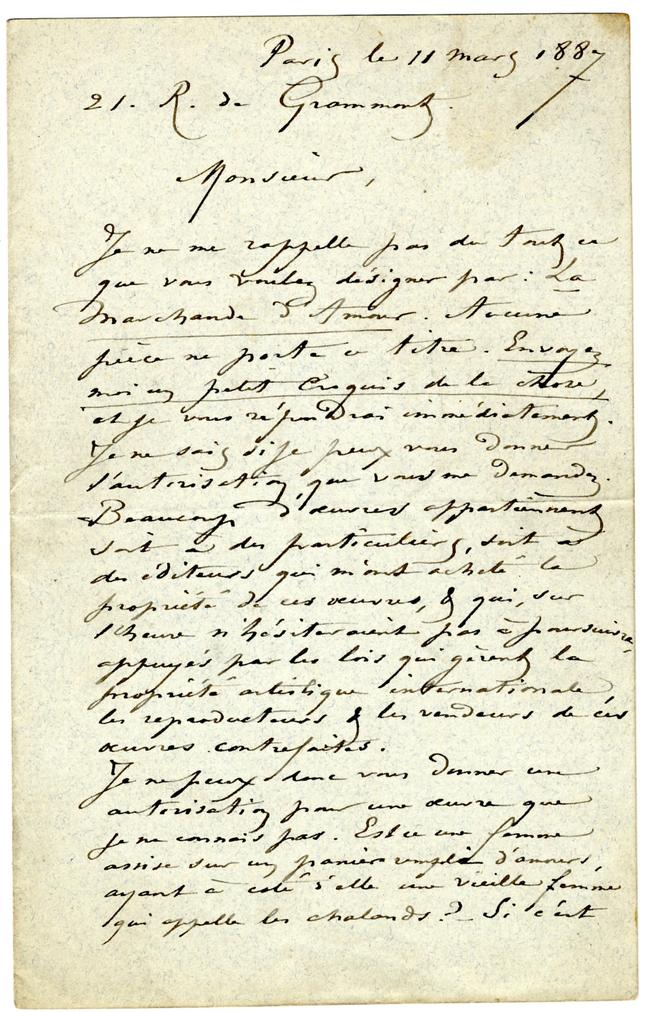 Paris le 11 mars 1887
21. R. de Grammont.
Monsieur,
Je ne me rappelle pas du tout ce
que vous voulez désigner par : La
Marchande d'Amour. Aucune
pièce ne porte ce titre. Envoyez
moi un petit croquis de la chose,
et je vous répondrai immédiatement.
Je ne sais si je peux vous donner
l'autorisation que vous me demandez.
Beaucoup d'œuvres appartiennent
soit à des particuliers, soit à
des éditeurs qui m'ont acheté la
propriété de ces œuvres, & qui, sur
l'heure n'hésiteraient pas à poursuivre
appuyés par les lois qui gèrent la
propriété artistique internationale
les reproducteurs & les vendeurs de ces
œuvres contrefaites.
Je ne peux donc vous donner une
autorisation pour une œuvre que
je ne connais pas. Est ce une femme
assise sur un panier rempli d'amours,
ayant à coté d'elle une vieille femme
qui appelle les chalands ? Si c'est